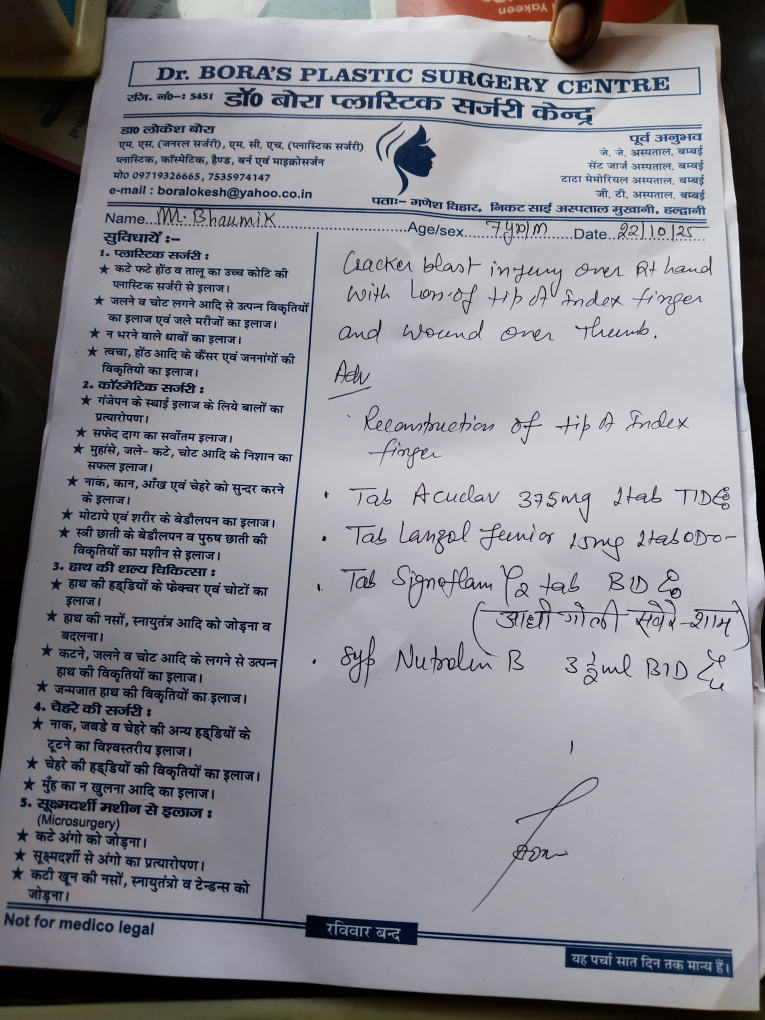 Yakeen
Dr. BORA'S PLASTIC SURGERY CENTRE
रजि. नं०-: 5451
डॉ० बोरा प्लास्टिक सर्जरी केन्द्र
डा० लोकेश बोरा
एम. एस. (जनरल सर्जरी), एम. सी. एच. (प्लास्टिक सर्जरी)
प्लास्टिक, कॉस्मेटिक, हैण्ड, बर्न एवं माइक्रोसर्जन
मो० 09719326665, 7535974147
e-mail : boralokesh@yahoo.co.in
पूर्व अनुभव
जे. जे. अस्पताल, बम्बई
सेंट जार्ज अस्पताल, बम्बई
टाटा मेमोरियल अस्पताल, बम्बई
जी. टी. अस्पताल, बम्बई
पताः- गणेश विहार, निकट साई अस्पताल मुखानी, हल्द्वानी
Name...Mr. Bhaumik...Age/sex...7yr/M...Date..22/10/25
सुविधायें :-
1. प्लास्टिक सर्जरी :
★ कटे फटे होंठ व तालू का उच्च कोटि की
प्लास्टिक सर्जरी से इलाज।
★ जलने व चोट लगने आदि से उत्पन्न विकृतियों
का इलाज एवं जले मरीजों का इलाज।
★ न भरने वाले घावों का इलाज।
★ त्वचा, होंठ आदि के कैंसर एवं जननांगों की
विकृतियो का इलाज।
2. कॉस्मेटिक सर्जरी :
★ गंजेपन के स्थाई इलाज के लिये बालों का
प्रत्यारोपण।
★ सफेद दाग का सर्वोतम इलाज।
★ मुहांसे, जले- कटे, चोट आदि के निशान का
सफल इलाज।
★ नाक, कान, आँख एवं चेहरे को सुन्दर करने
के इलाज।
★ मोटापे एवं शरीर के बेडौलपन का इलाज।
★ स्त्री छाती के बेडौलपन व पुरुष छाती की
विकृतियों का मशीन से इलाज।
3. हाथ की शल्य चिकित्सा :
★ हाथ की हड्डियों के फ्रेक्चर एवं चोटों का
इलाज।
★ हाथ की नसों, स्नायुतंत्र आदि को जोड़ना व
बदलना।
★ कटने, जलने व चोट आदि के लगने से उत्पन्न
हाथ की विकृतियों का इलाज।
★ जन्मजात हाथ की विकृतियों का इलाज।
4. चेहरे की सर्जरी :
★ नाक, जबडे व चेहरे की अन्य हड्डियों के
टूटने का विश्वस्तरीय इलाज।
★ चेहरे की हड्डियों की विकृतियों का इलाज।
★ मुँह का न खुलना आदि का इलाज।
5. सूक्ष्मदर्शी मशीन से इलाज :
(Microsurgery)
★ कटे अंगो को जोड़ना।
★ सूक्ष्मदर्शी से अंगो का प्रत्यारोपण।
★ कटी खून की नसों, स्नायुतंत्रो व टेन्डन्स को
जोड़ना।
Cracker blast injury over Rt hand
with Loss of tip of Index finger
and wound over Thumb.
Adv
· Reconstruction of tip of Index
finger
· Tab Acuclav 375mg 1tab TID
· Tab Lanzol Junior 15mg 1tab OD
· Tab Signoflam 1/2 tab BID
(आधी गोली सवेरे-शाम)
· Syp Nutrolin B 3 1/2 ml BID
Not for medico legal
रविवार बन्द
यह पर्चा सात दिन तक मान्य हैं।